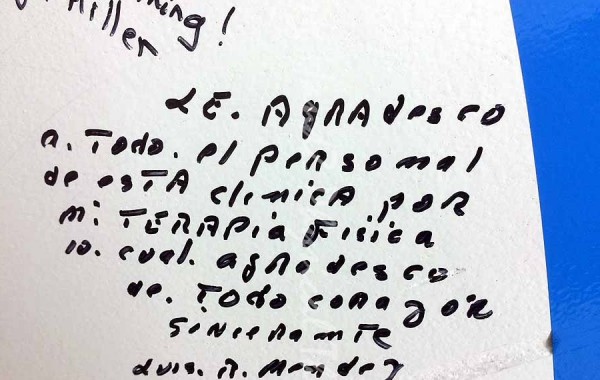 ning!
Miller
LE. AgRAdesco
a. Todo. el personal
de esTA clinicA pOR
mi TERAPia Fisica
lo. cual. agradesco
de. Todo corazón
sinceramte
Luis. A. Mendez